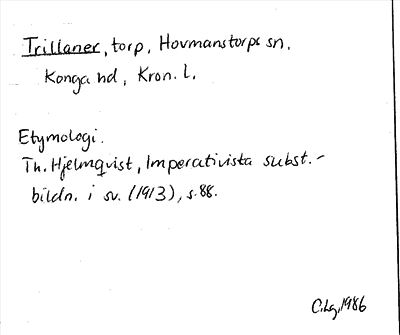 Trillaner, torp, Hovmanstorps sn,
Konga hd, Kron. l.
Etymologi.
Th. Hjelmqvist, Imperativista subst.-
bildn. i sv. (1913), s. 88.
C.Lg. 1986